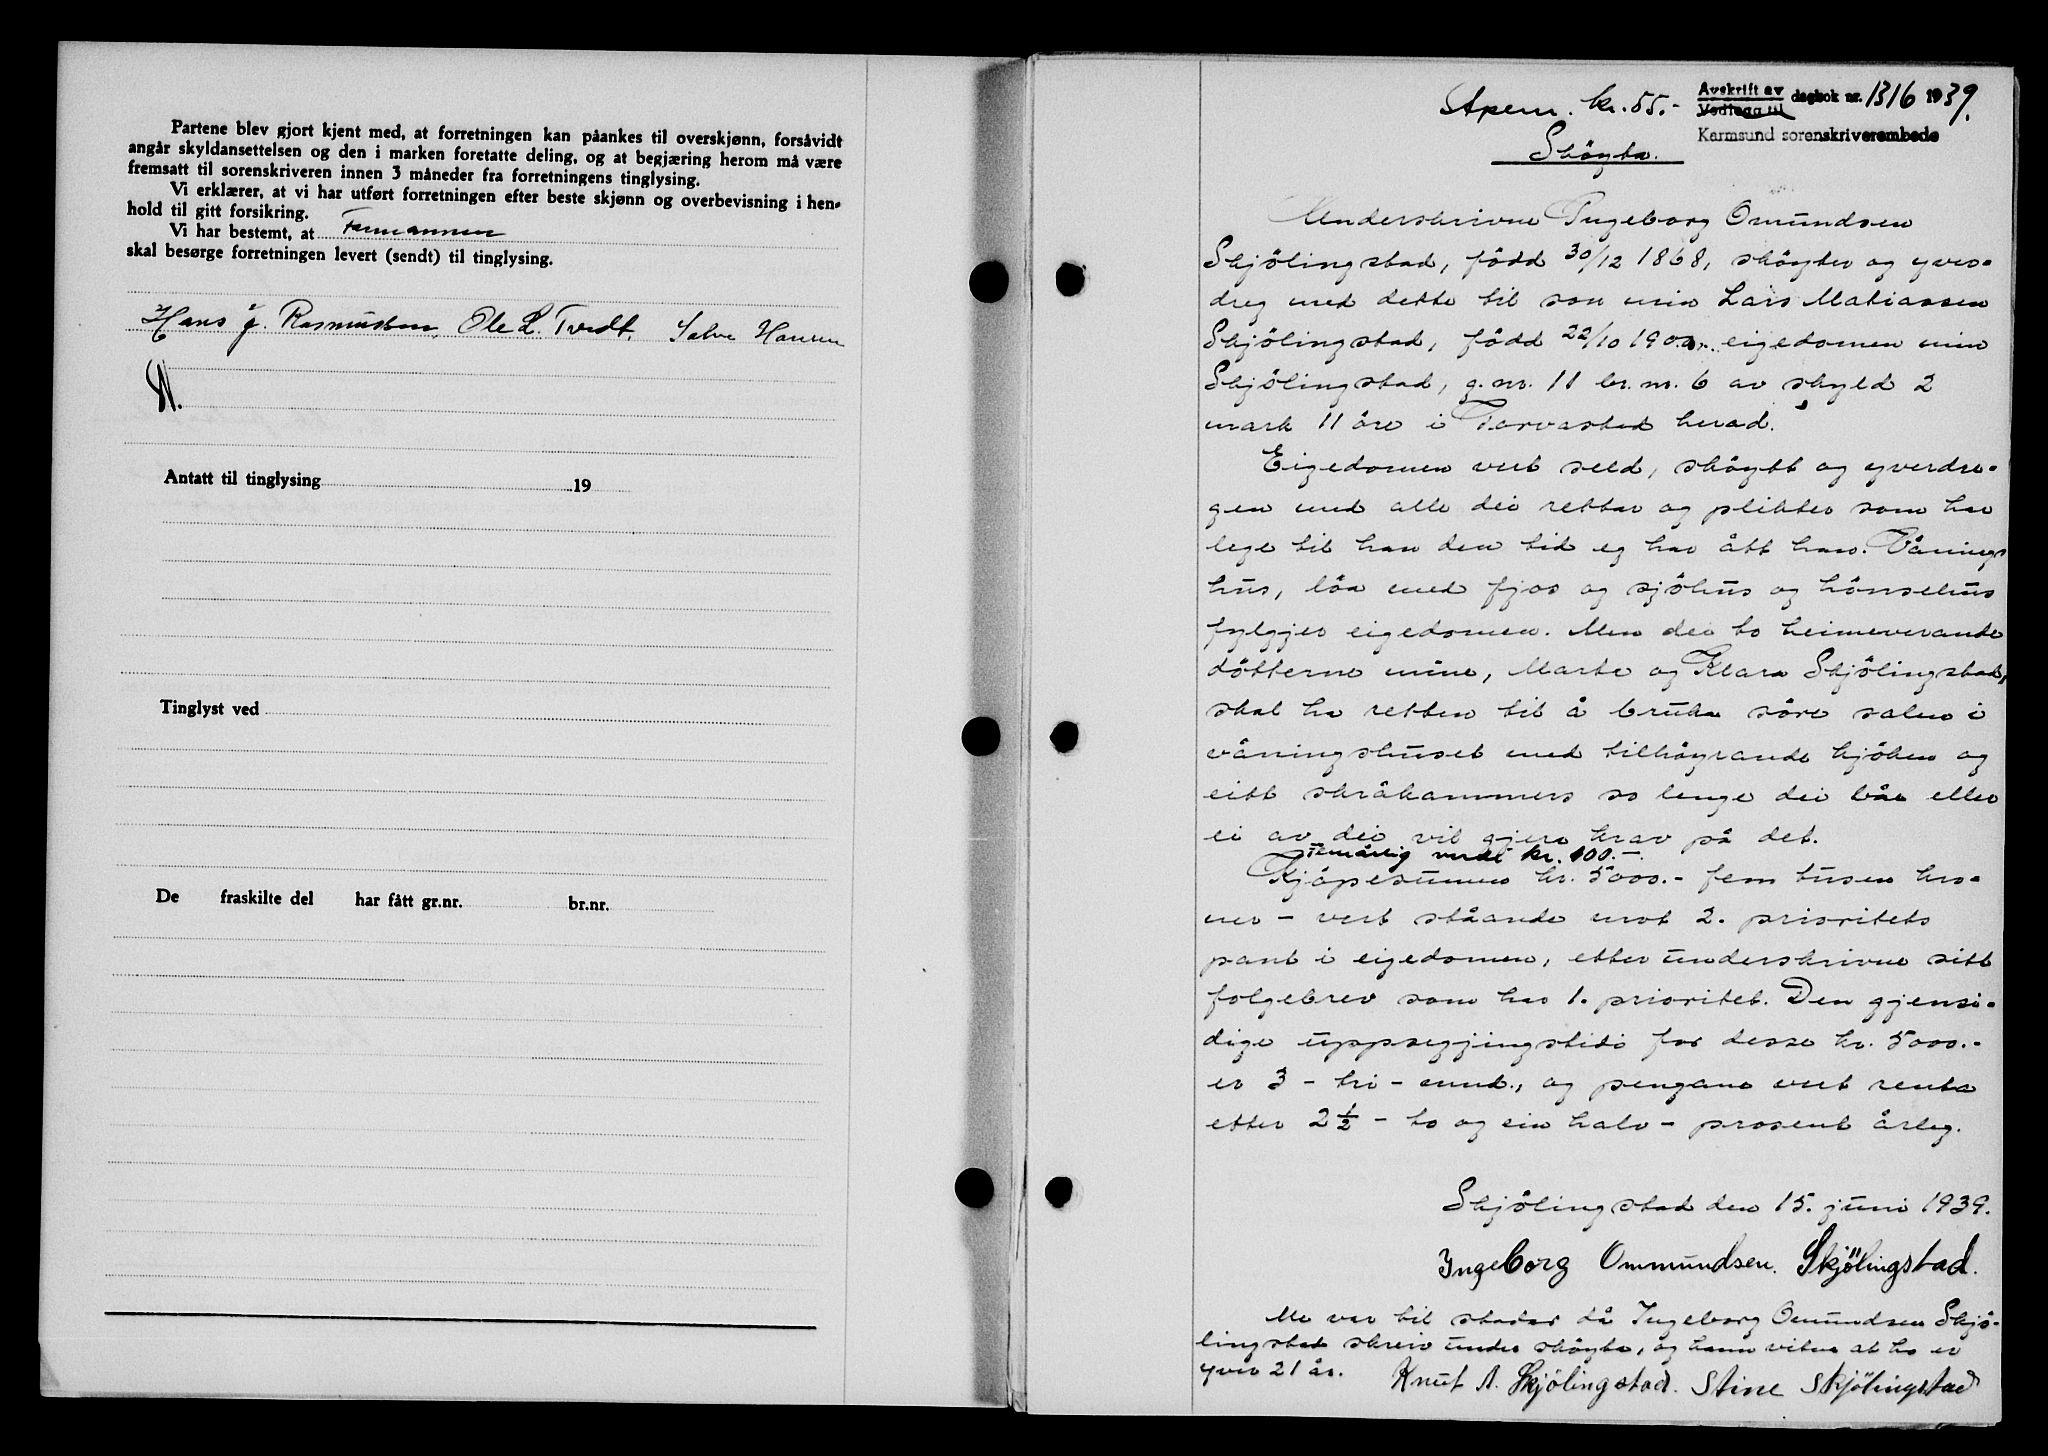 Partene blev gjort kjent med, at forretningen kan påankes til overskjønn, forsåvidt
angår skyldansettelsen og den i marken foretatte deling, og at begjæring herom må være
fremsatt til sorenskriveren innen 3 måneder fra forretningens tinglysing.
Vi erklærer, at vi har utført forretningen efter beste skjønn og overbevisning i hen-
hold til gitt forsikring.
Vi har bestemt, at Formannen
skal besørge forretningen levert (sendt) til tinglysing.
Hans J. Rasmussen, Ole L. Tvedt, Salve Hansen
Antatt til tinglysing 19
Tinglyst ved
De fraskilte del har fått gr.nr. br.nr.
Stpem. kr. 55.-
Avskrift av
Vedlegg til
dagbok nr. 1316 1939.
Karmsund sorenskriverembede
Skøyte.
Underskrivne Ingeborg Omundsen
Skjölingstad, född 30/12 1868, skøyter og yver-
dreg med dette til son min Lars Matiassen
Skjölingstad, född 22/10 1900, eigedomen min
Skjölingstad, g.nr. 11 br.nr. 6 av skyld 2
mark 11 öre i Torvastad herad.
Eigedomen vert seld, sköytt og yverdre-
gen med alle dei rettar og plikter som har
lege til han den tid eg har ått han. Vånings
hus, löa med fjos og sjöhus og hönsehus
fylgjer eigedomen. Men dei to heimeverande
dötterne mine, Marte og Klara Skjölingstad,
skal ha retten til å bruka söre salen i
våningshuset med tilhöyrande kjöken og
eitt skråkammers so lenge dei båe eller
ei av dei vil gjera krav på det.
Femårig verdi kr. 100.-
Kjöpesumen kr. 5000.- fem tusen kro-
ner - vert ståande mot 2. prioritets
pant i eigedomen, etter underskrivne sitt
folgebrev som har 1. prioritet. Den gjensi-
dige uppsegjingstidi for desse kr. 5000.-
er 3 - tri - mnd., og pengane vert renta
etter 2 1/2 - to og ein halv - prosent årleg.
Skjölingstad den 15. juni 1939.
Ingeborg Ommundsen. Skjölingstad.
Me var til stadar då Ingeborg Omundsen Skjö-
lingstad skreiv under sköyte, og henn vitne at ho er
yver 21 år. Knut A. Skjölingstad. Stine Skjölingstad